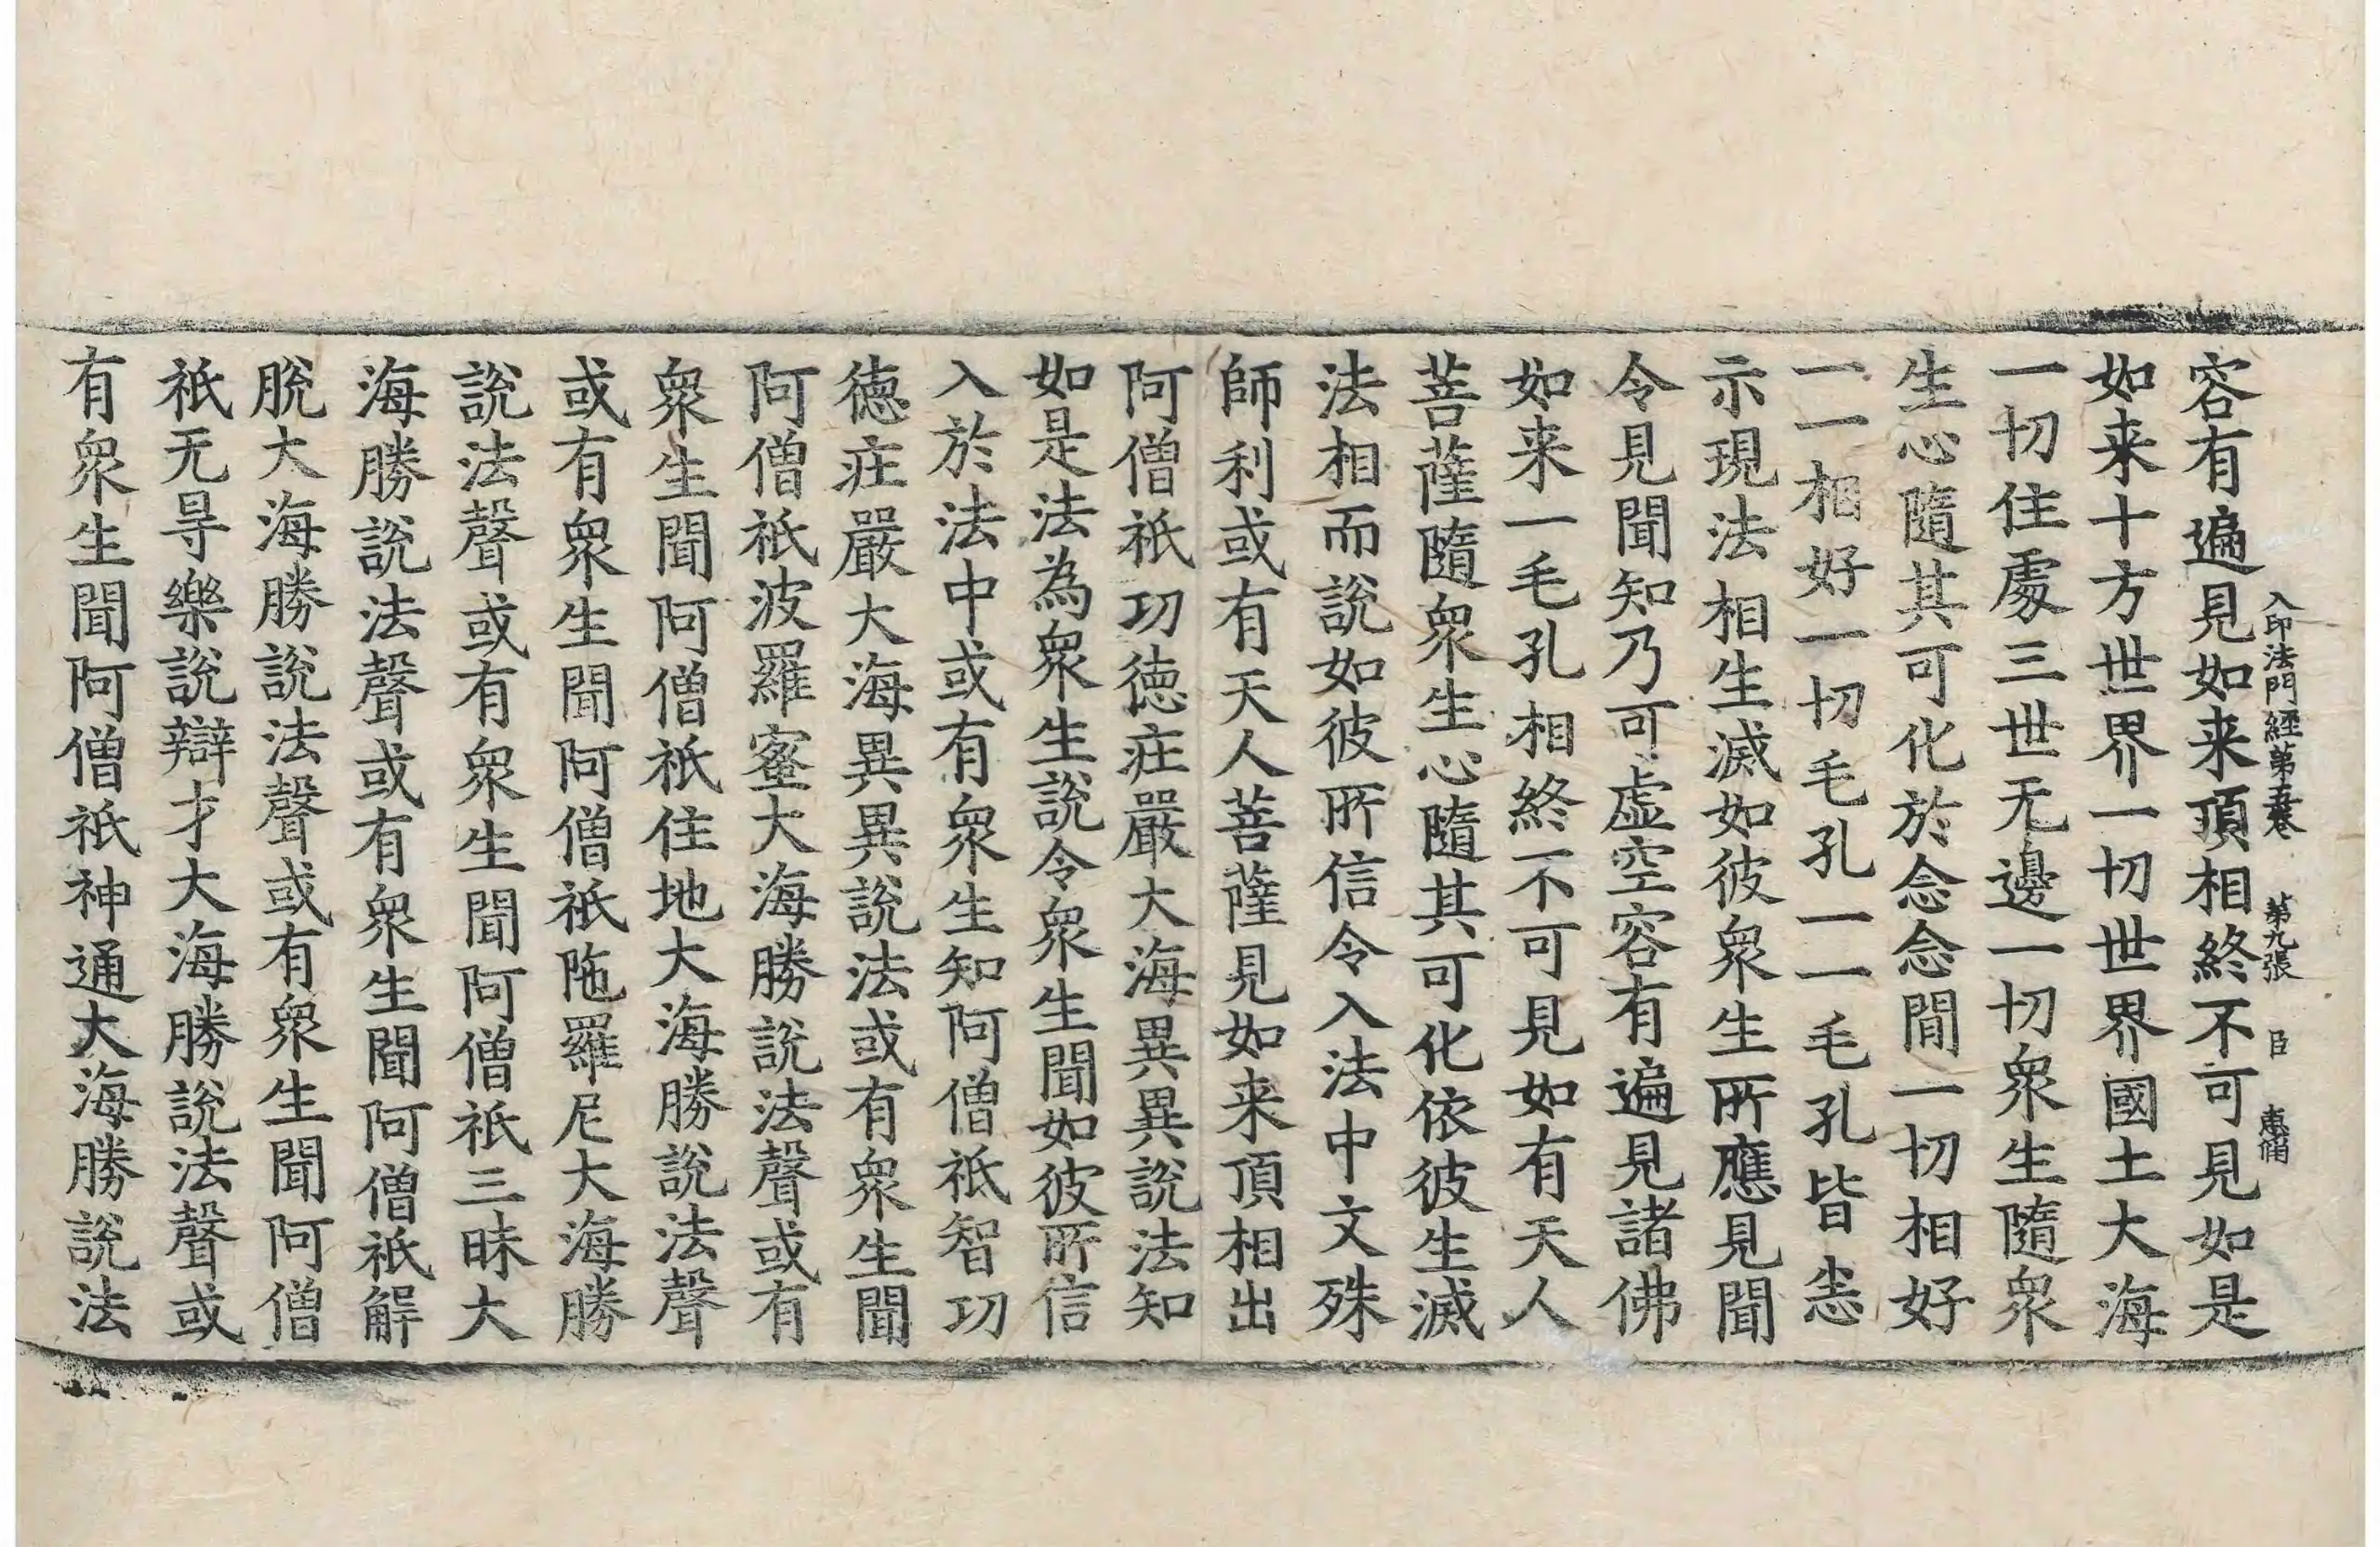 入印法門經第五卷 第九張 臣
容有遍見如来頂相終不可見如是
如来十方世界一切世界國土大海
一切住處三世无邊一切衆生隨衆
生心隨其可化於念念間一切相好
一一相好一切毛孔一一毛孔皆悉
示現法相生滅如彼衆生所應見聞
令見聞知乃可虛空容有遍見諸佛
如来一毛孔相終不可見如有天人
菩薩隨衆生心隨其可化依彼生滅
法相而說如彼所信令入法中文殊
師利或有天人菩薩見如来頂相出
阿僧祇功徳莊嚴大海異異說法知
如是法為衆生說令衆生聞如彼所信
入於法中或有衆生知阿僧祇智功
徳莊嚴大海異異說法或有衆生聞
阿僧祇波羅蜜大海勝說法聲或有
衆生聞阿僧祇住地大海勝說法聲
或有衆生聞阿僧祇陁羅尼大海勝
說法聲或有衆生聞阿僧祇三昧大
海勝說法聲或有衆生聞阿僧祇解
脫大海勝說法聲或有衆生聞阿僧
祇无㝵樂說辯才大海勝說法聲或
有衆生聞阿僧祇神通大海勝說法